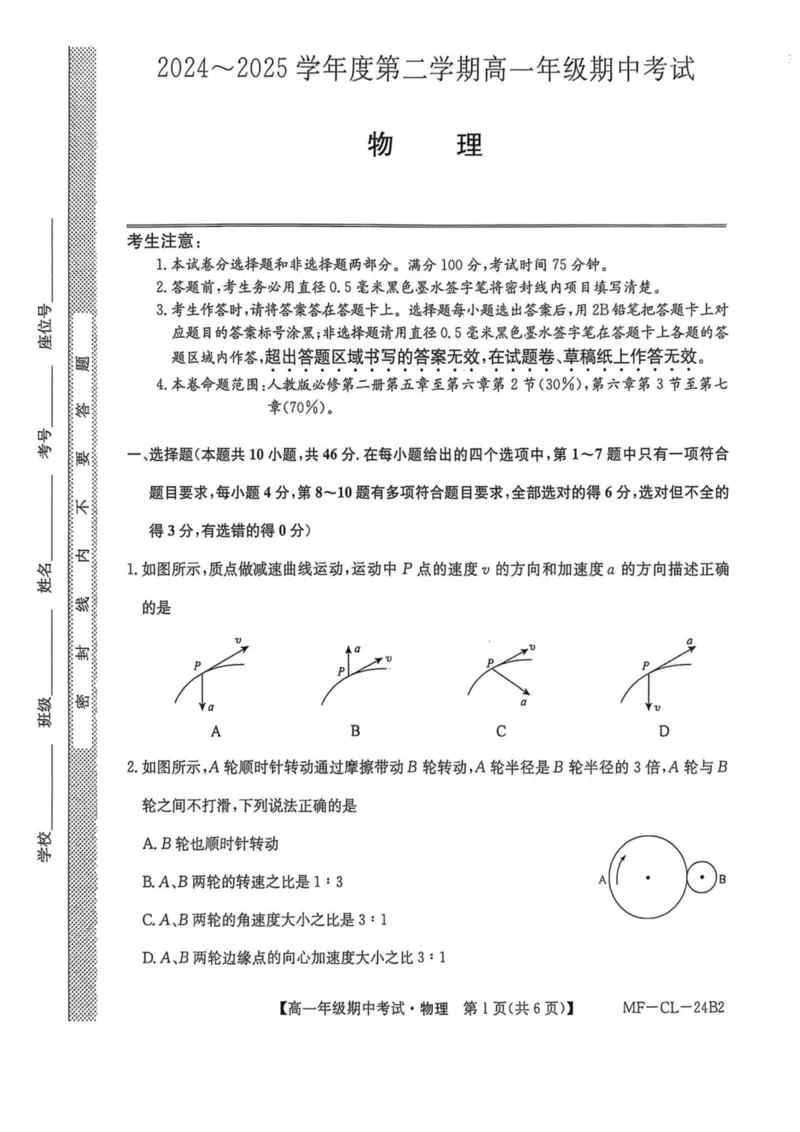 2024～2025学年度第二学期高一年级期中考试
物 理
考生注意：
1.本试卷分选择题和非选择题两部分。满分100分,考试时间75分钟。
2.答题前,考生务必用直径0.5毫米黑色墨水签字笔将密封线内项目填写清楚。
3.考生作答时,请将答案答在答题卡上。选择题每小题选出答案后,用2B铅笔把答题卡上对
应题目的答案标号涂黑;非选择题请用直径0.5毫米黑色墨水签字笔在答题卡上各题的答
题区域内作答,超出答题区域书写的答案无效,在试题卷、草稿纸上作答无效。
4.本卷命题范围:人教版必修第二册第五章至第六章第2节(30%),第六章第3节至第七
章(70%)。
一、选择题(本题共10小题,共46分.在每小题给出的四个选项中,第1～7题中只有一项符合
题目要求,每小题4分,第8～10题有多项符合题目要求,全部选对的得6分,选对但不全的
得3分,有选错的得0分)
1.如图所示,质点做减速曲线运动,运动中P点的速度v的方向和加速度a的方向描述正确
的是
P v a
P a v
P v a
P a v
A B C D
2.如图所示,A轮顺时针转动通过摩擦带动B轮转动,A轮半径是B轮半径的3倍,A轮与B
轮之间不打滑,下列说法正确的是
A.B轮也顺时针转动
B.A、B两轮的转速之比是1∶3
C.A、B两轮的角速度大小之比是3∶1
D.A、B两轮边缘点的向心加速度大小之比3∶1
A B
【高一年级期中考试·物理 第1页(共6页)】 MF－CL－24B2
学校 班级 姓名 考号 座位号
密 封 线 内 不 要 答 题